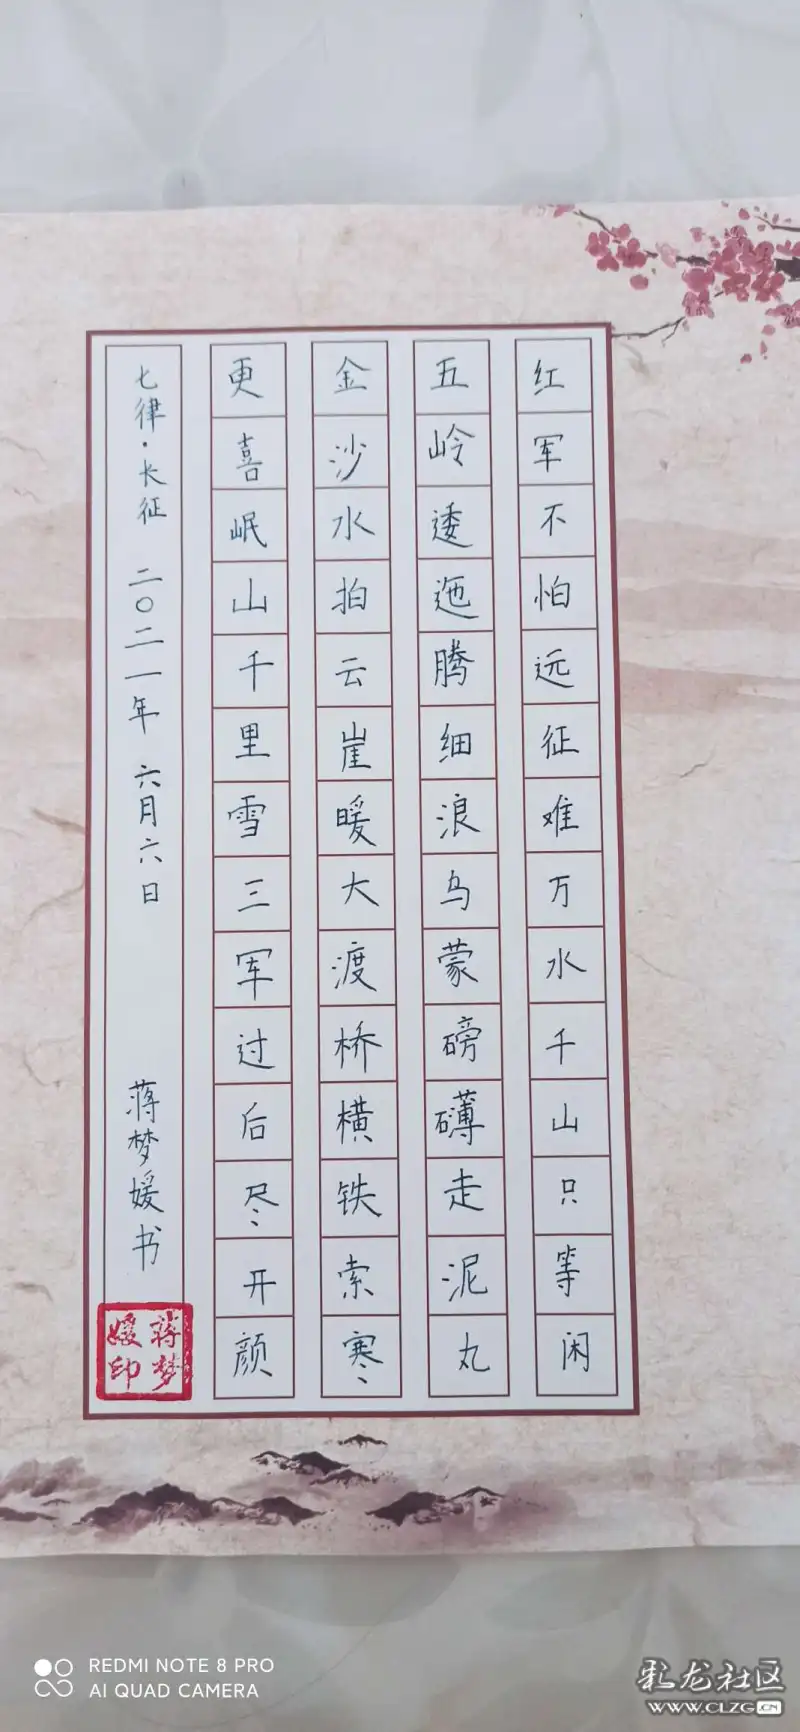 红军不怕远征难万水千山只等闲
五岭逶迤腾细浪乌蒙磅礴走泥丸
金沙水拍云崖暖大渡桥横铁索寒
更喜岷山千里雪三军过后尽开颜
七律·长征 二〇二一年 六月六日 蒋梦媛书
蒋梦
媛印
REDMI NOTE 8 PRO
AI QUAD CAMERA
彩龙社区
WWW.CLZG.CN